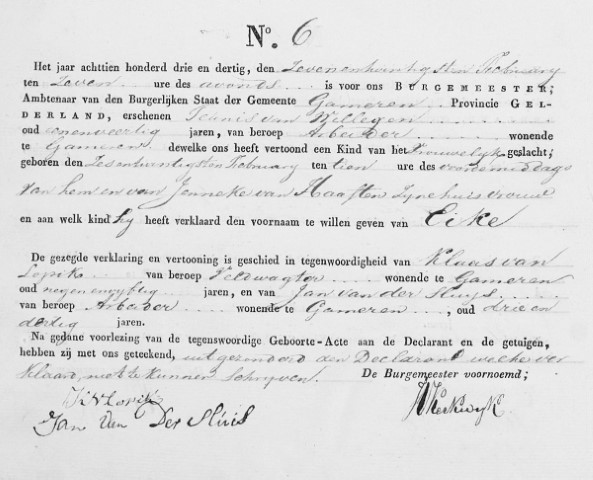 No. 6
Het jaar achttien honderd drie en dertig, den Zevenentwintigsten February
ten Zeven ure des avonds is voor ons BURGEMEESTER,
Ambtenaar van den Burgerlijken Staat der Gemeente Gameren Provincie GEL-
DERLAND, erschenen Teunis van Willegen
oud eenenveertig jaren, van beroep Arbeider wonende
te Gameren dewelke ons heeft vertoond een Kind van het Vrouwelyk geslacht;
geboren den Zesentwintigsten February ten tien ure des voordemiddags
van hem en van Jenneke van Haaften Zyne huisvrouw
en aan welk kind hy heeft verklaard den voornaam te willen geven van Eike
De gezegde verklaring en vertooning is geschied in tegenwoordigheid van Klaas van
Lopik van beroep Veldwagter wonende te Gameren
oud negenenvyftig jaren, en van Jan van der Sluys
van beroep Arbeider wonende te Gameren, oud drie en
dertig jaren.
Na gedane voorlezing van de tegenswoordige Geboorte-Acte aan de Declarant en de getuigen,
hebben zij met ons geteekend, uitgezonderd den Declarant welke ver
klaard niet te kunnen schryven. De Burgemeester voornoemd;
K V Lopik
Jan Van Der Sluis